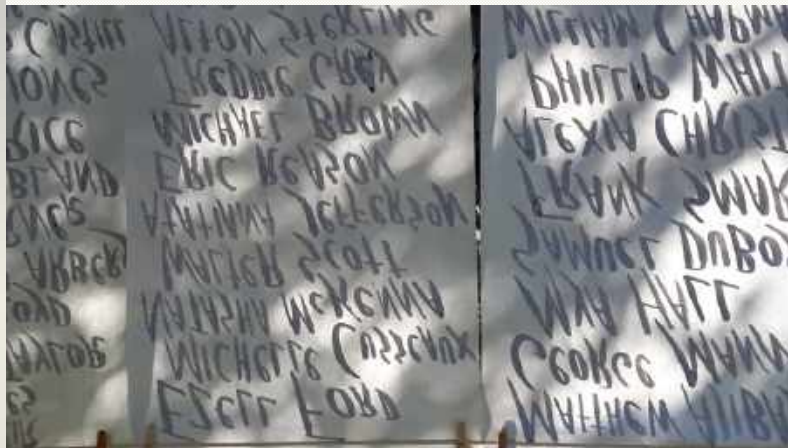 AYLOR
OYD
ARBERY
RNER
BLAND
RICE
JONES
CASTILL
EZELL FORD
MICHELLE CUSSEAUX
NATASHA McKENNA
WALTER SCOTT
ATATIANA JEFFERSON
ERIC REASON
MICHAEL BROWN
FREDDIE GRAY
ALTON STERLING
MATTHEW AJIBA
GEORGE MANN
MYA HALL
SAMUEL DUBOS
FRANK SMAR
ALEXIA CHRIST
PHILLIP WHIT
WILLIAM CHAPMA